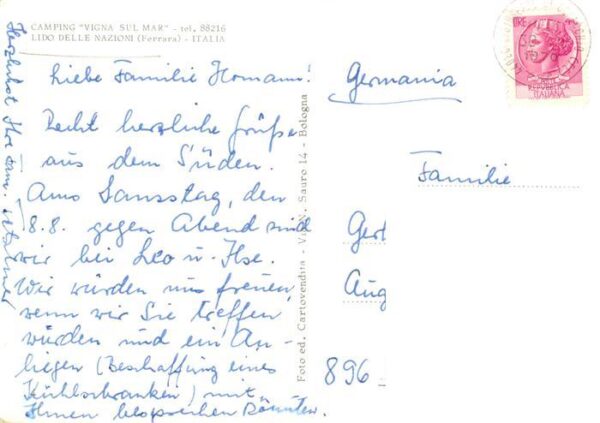 CAMPING "VIGNA SUL MAR" - tel. 88216
LIDO DELLE NAZIONI (Ferrara) - ITALIA
Liebe Familie Homann!
Recht herzliche Grüße
aus dem Süden.
Am Samstag, den
8.8. gegen Abend sind
wir bei Leo u. Ilse.
Wir würden uns freuen,
wenn wir Sie treffen
würden und ein An-
liegen (Beschaffung eines
Kühlschrankes) mit
Ihnen besprechen könnten.
Herzlichst Ihre Fam.
Foto ed. Cartovendita - Via N. Sauro 14 - Bologna
Germania
Familie
Gert
Aug
896
LIRE
REPUBBLICA
ITALIANA